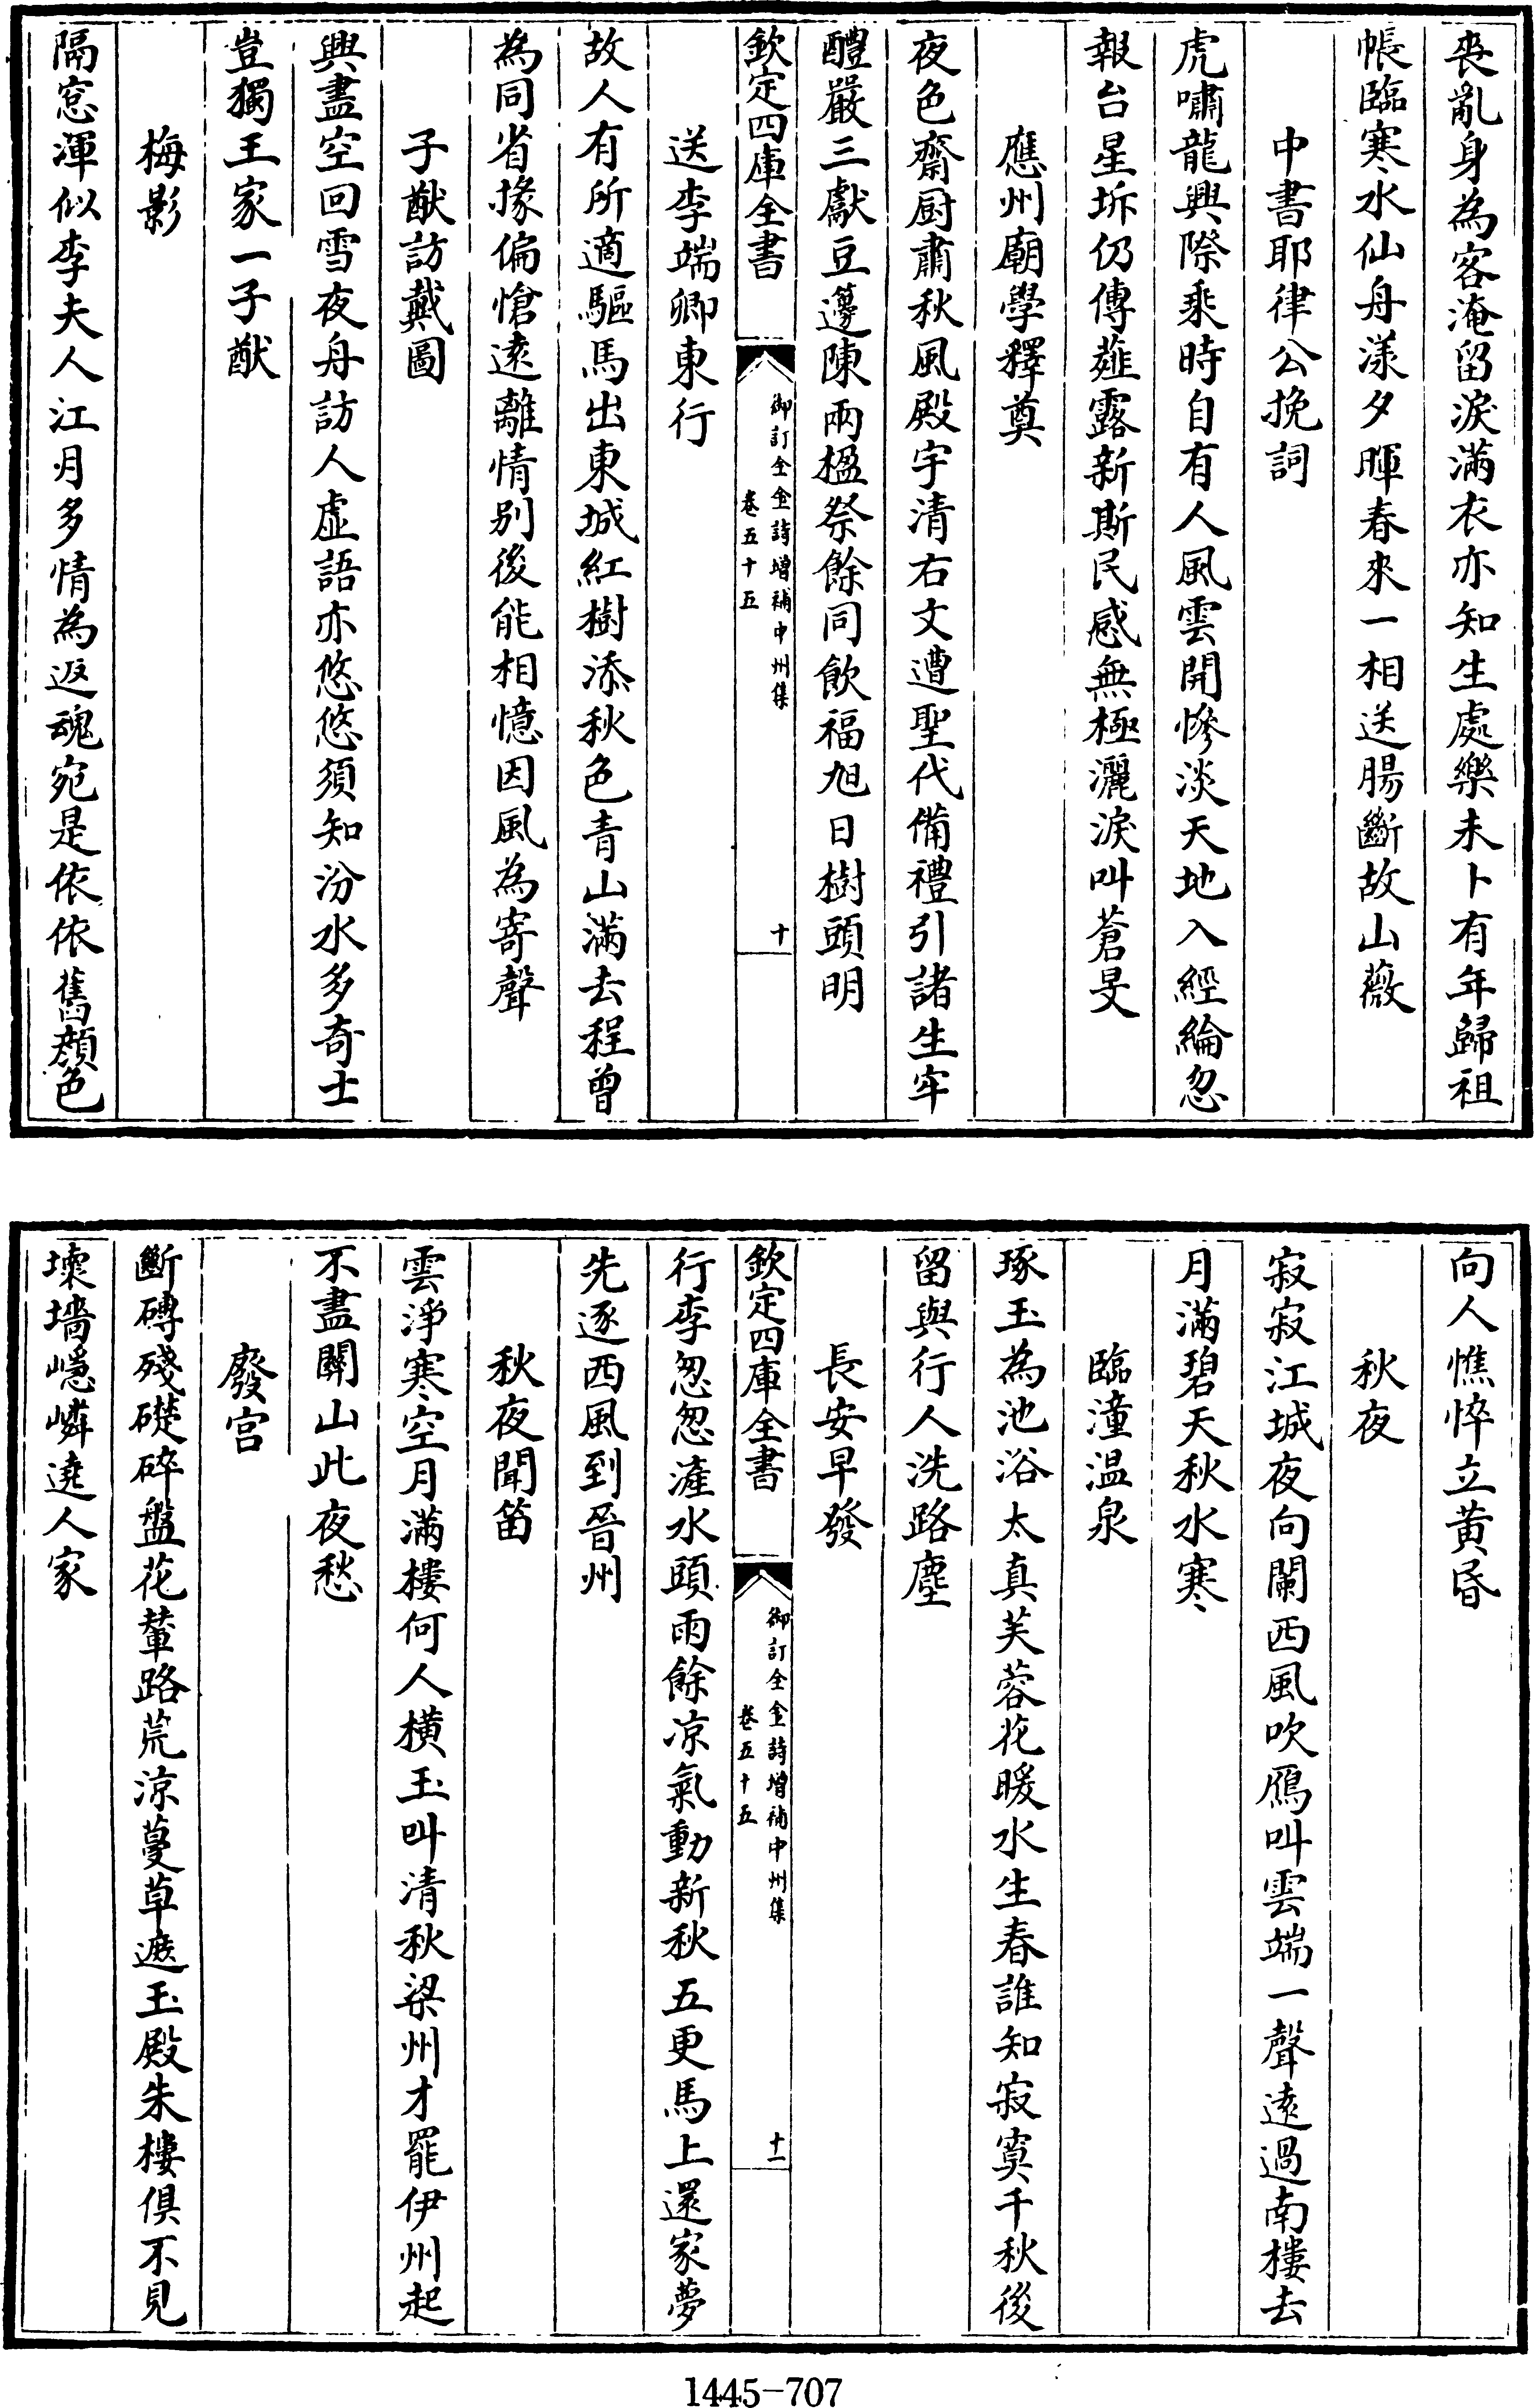 喪亂身為客淹留淚滿衣亦知生處樂未卜有年歸祖
帳臨寒水仙舟漾夕暉春來一相送腸斷故山薇
中書耶律公挽詞
虎嘯龍興際乘時自有人風雲開慘淡天地入經綸忽
報台星坼仍傳薤露新斯民感無極灑淚叫蒼旻
應州廟學釋奠
夜色齋厨肅秋風殿宇清右文遭聖代備禮引諸生牢
醴嚴三獻豆籩陳兩楹祭餘同飲福旭日樹頭明
欽定四庫全書
御訂全金詩增補中州集
卷五十五
十
送李端卿東行
故人有所適驅馬出東城紅樹添秋色青山滿去程曾
為同省掾偏愴遠離情别後能相憶因風為寄聲
子猷訪戴圖
興盡空回雪夜舟訪人虛語亦悠悠須知汾水多奇士
豈獨王家一子猷
梅影
隔窓渾似李夫人江月多情為返魂宛是依依舊顔色
向人憔悴立黄昏
秋夜
寂寂江城夜向闌西風吹鴈叫雲端一聲遠過南樓去
月滿碧天秋水寒
臨潼温泉
琢玉為池浴太真芙蓉花暖水生春誰知寂寞千秋後
留與行人洗路塵
長安早發
欽定四庫全書
御訂全金詩增補中州集
卷五十五
十一
行李忽忽滻水頭雨餘凉氣動新秋五更馬上還家夢
先逐西風到晉州
秋夜聞笛
雲淨寒空月滿樓何人横玉叫清秋梁州才罷伊州起
不盡關山此夜愁
廢宫
斷磚殘礎碎盤花輦路荒凉蔓草遮玉殿朱樓俱不見
壊墻嶾嶙遶人家
1445-707